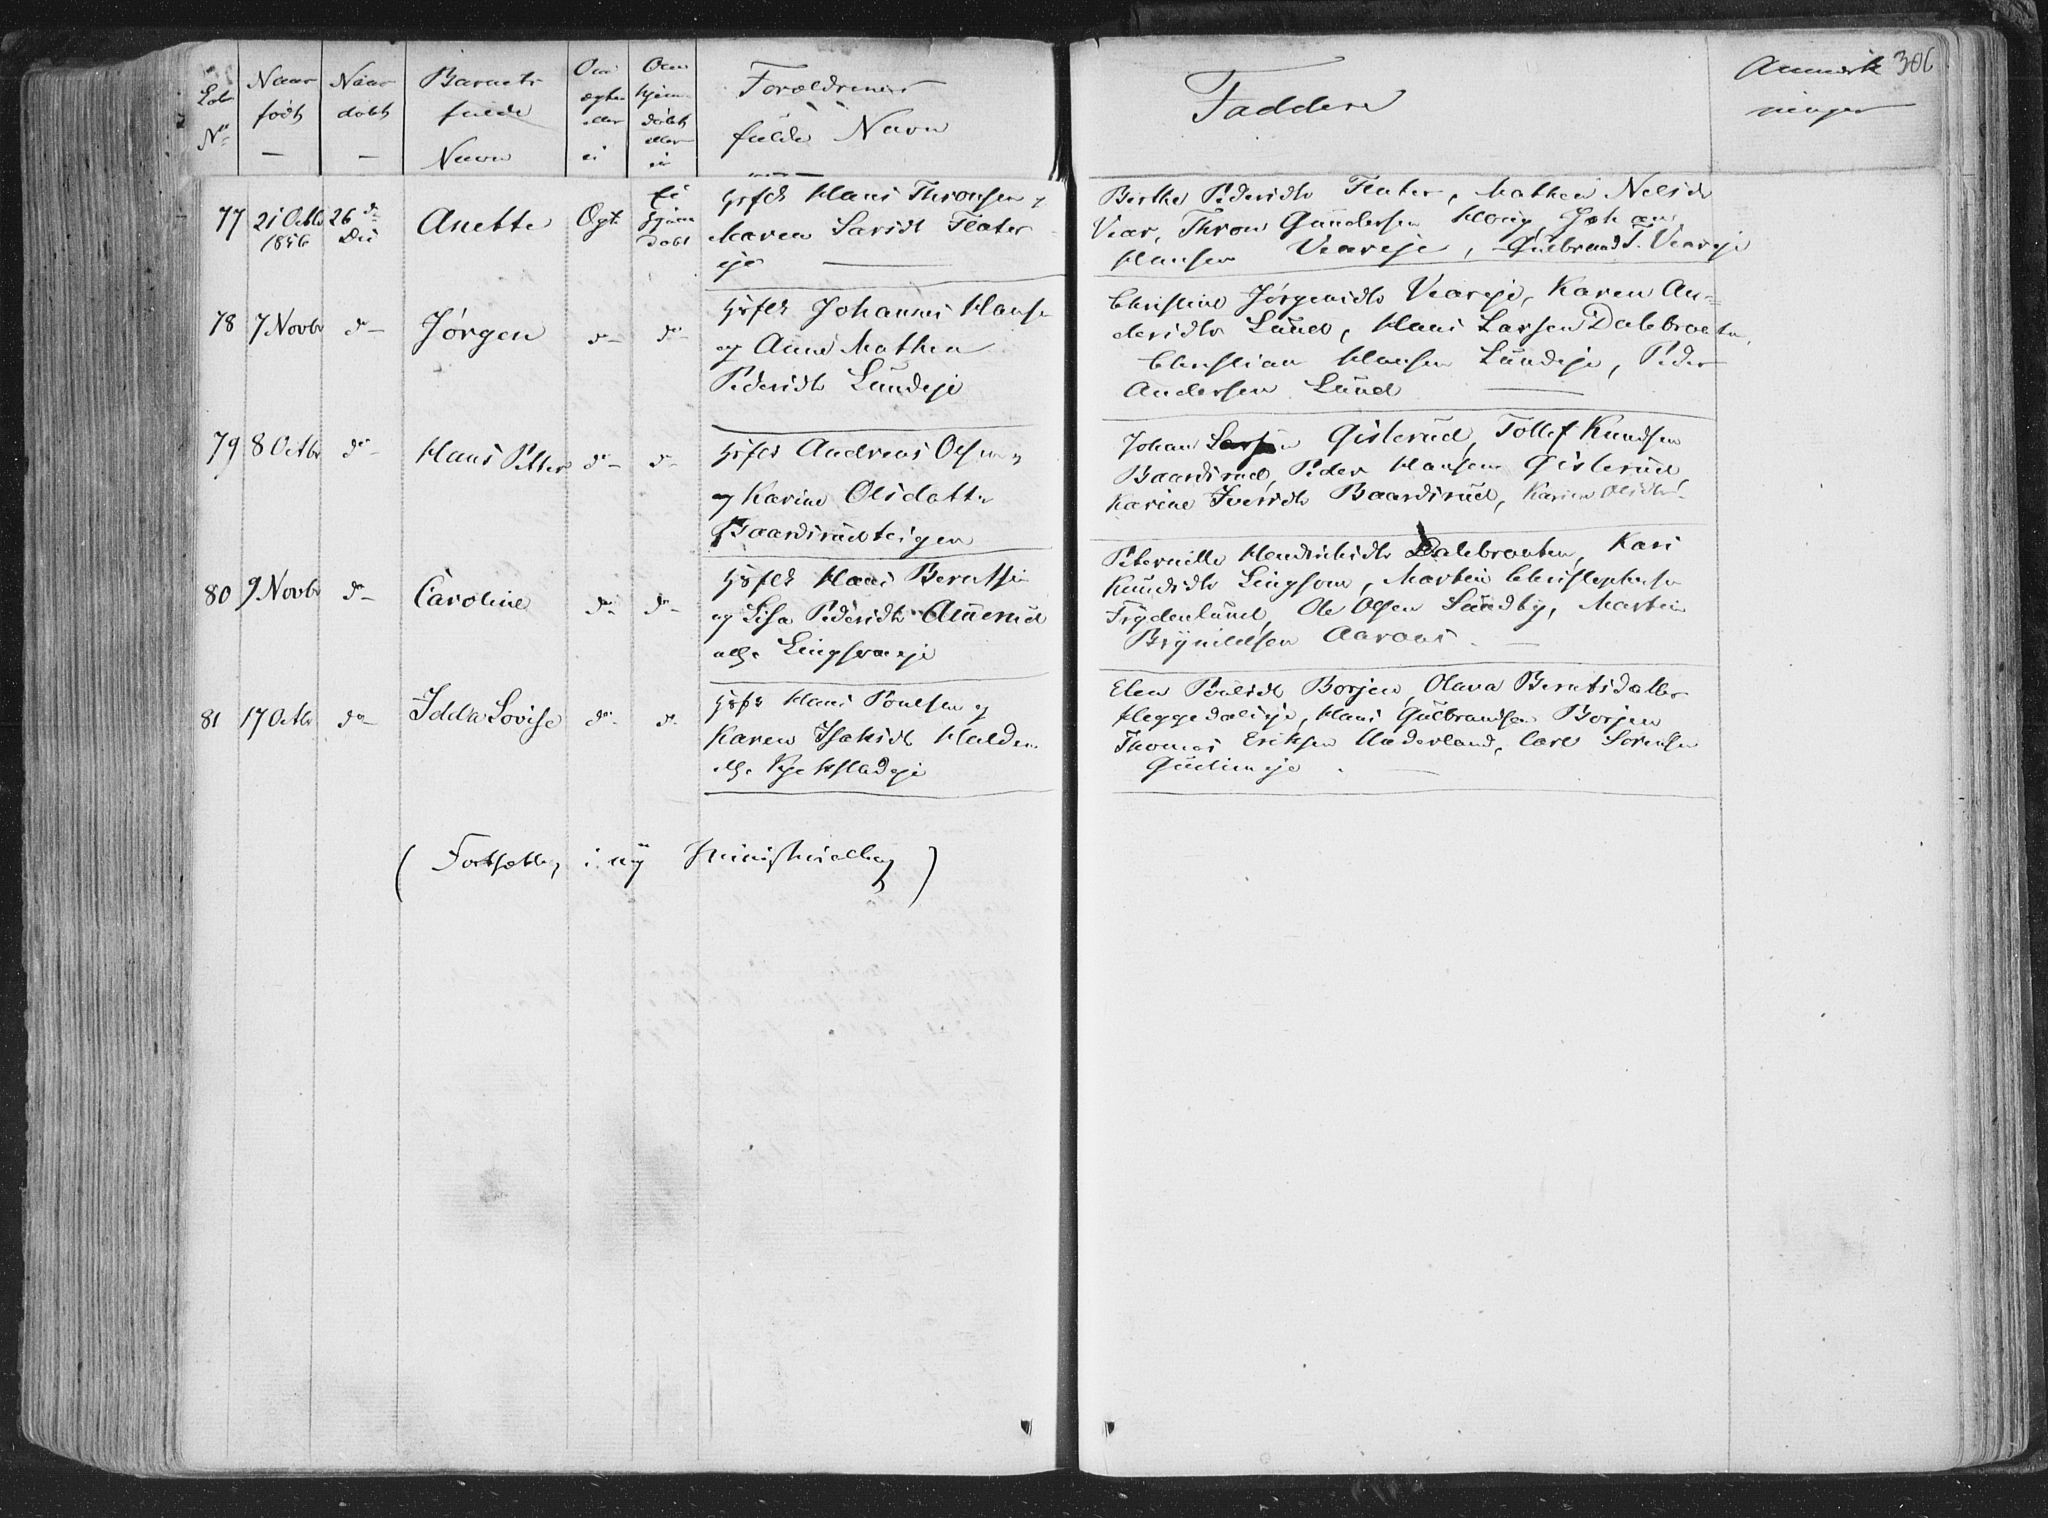 306
Lob N:
Naar født —
Naar døbt —
Barnets fulde Navn
Om ægte eller ei
Om hjem døbt eller ei
Forældrenes fulde Navn
Faddere
Anmærk ninger
77 21 Octb 1856 26 d: Dec Anette Ægte ei hjem døbt
Hans Thronsen
Maren Larsdt Flater
eje
Berthe Pedersdt Flater, Mathea Nelsd
Vear, Thron Gundersen Houg, Johan
Hansen Veareje, Gulbrand T. Veareje
78 7 Novbr d— Jørgen d— d—
Johannes Hanse
og Anne Mathea
Pedersdt Lundeje
Christine Jørgensdt Veareje, Karen An=
dersdt Lund, Hans Larsen Dalebraatn,
Christian Hansen Lundeje, Peder
Andersen Lund
79 8 Octbr d— Hans Petter d— d—
Andreas Olsen
og Karine Olsdatter
Baardsrudteigen
Johan Larsen Gislerud, Tollef Knudsen
Baardsrud, Peder Hansen Gislerud,
Karine Iversdt Baardsrud, Karen Olsdt
80 9 Novbr d— Caroline d— d—
Hans Berntsen
og Lisa Pedersdt
Lingsomeje
Peternille Hendriksdt Dalebraaten, Kari
Knudsdt Lingsom, Martin Christophersen
Frydenlund, Ole Olsen Sundby, Martin
Brynildsen Aaraas
81 17 Octbr d— Idda Lovise d— d—
Hans Poulsen og
Karen Isaksdt Halden
Elen Poulsdt Borgen, Olava Berntsdatter
Heggedaleje, Hans Gulbrandsen Borgen
Thomas Eriksen Haderland, Carl Sørensen
(Fortsættes i ny Ministerialbog)